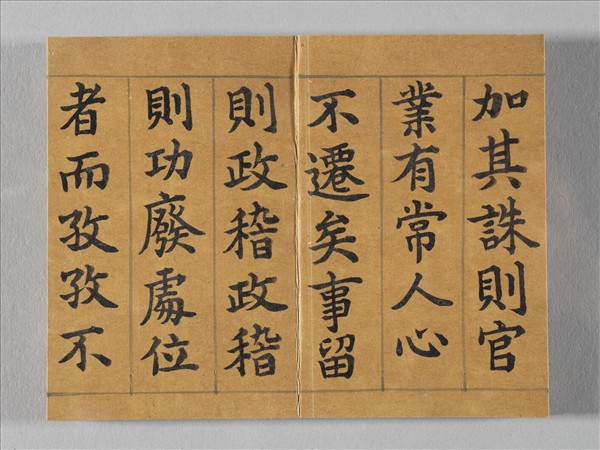 加其誅則官
業有常人心
不遷矣事留
則政稽政稽
則功廢處位
者而孜孜不